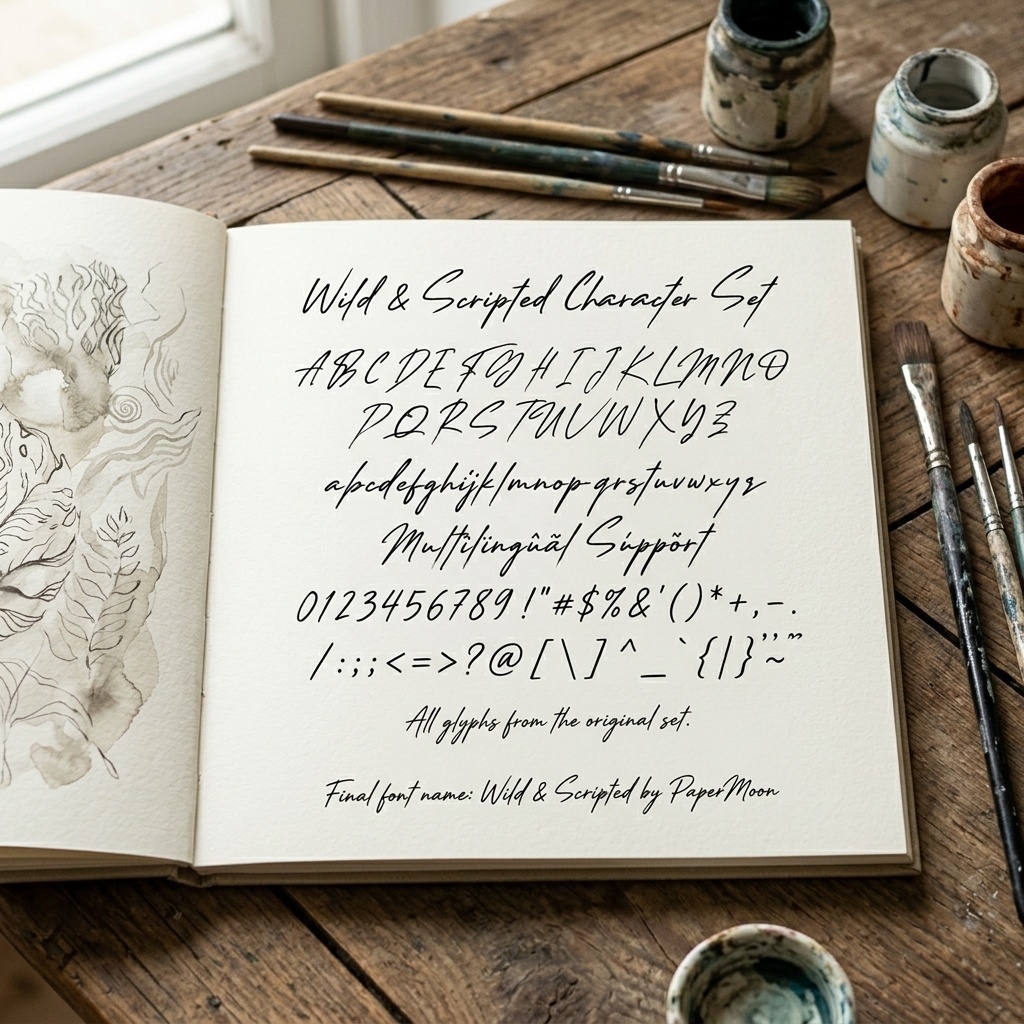 Wild & Scripted Character Set
ABCDEFGHIJKLMNO
PQRSTUVWXYZ
abcdefghijklmnopqrstuvwxyz
Multîlïngûãl Súppõrt
0123456789!"#$%&'()*+,-.
/:;;<=>?@[\]^_`{|}~
All glyphs from the original set.
Final font name: Wild & Scripted by PaperMoon